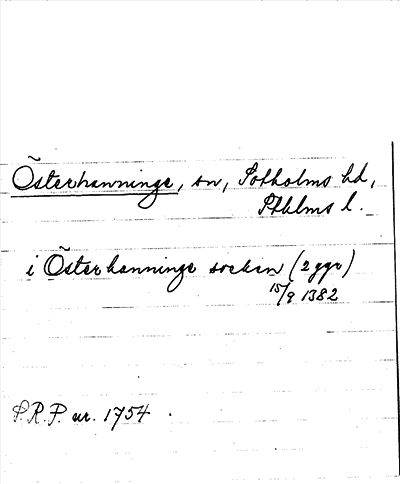 Österhanninge, sn, Sotholms hd,
Sthlms l.
i Österhanninge socken (2 ggr)
15/9 1382
S.R.P. nr. 1754.